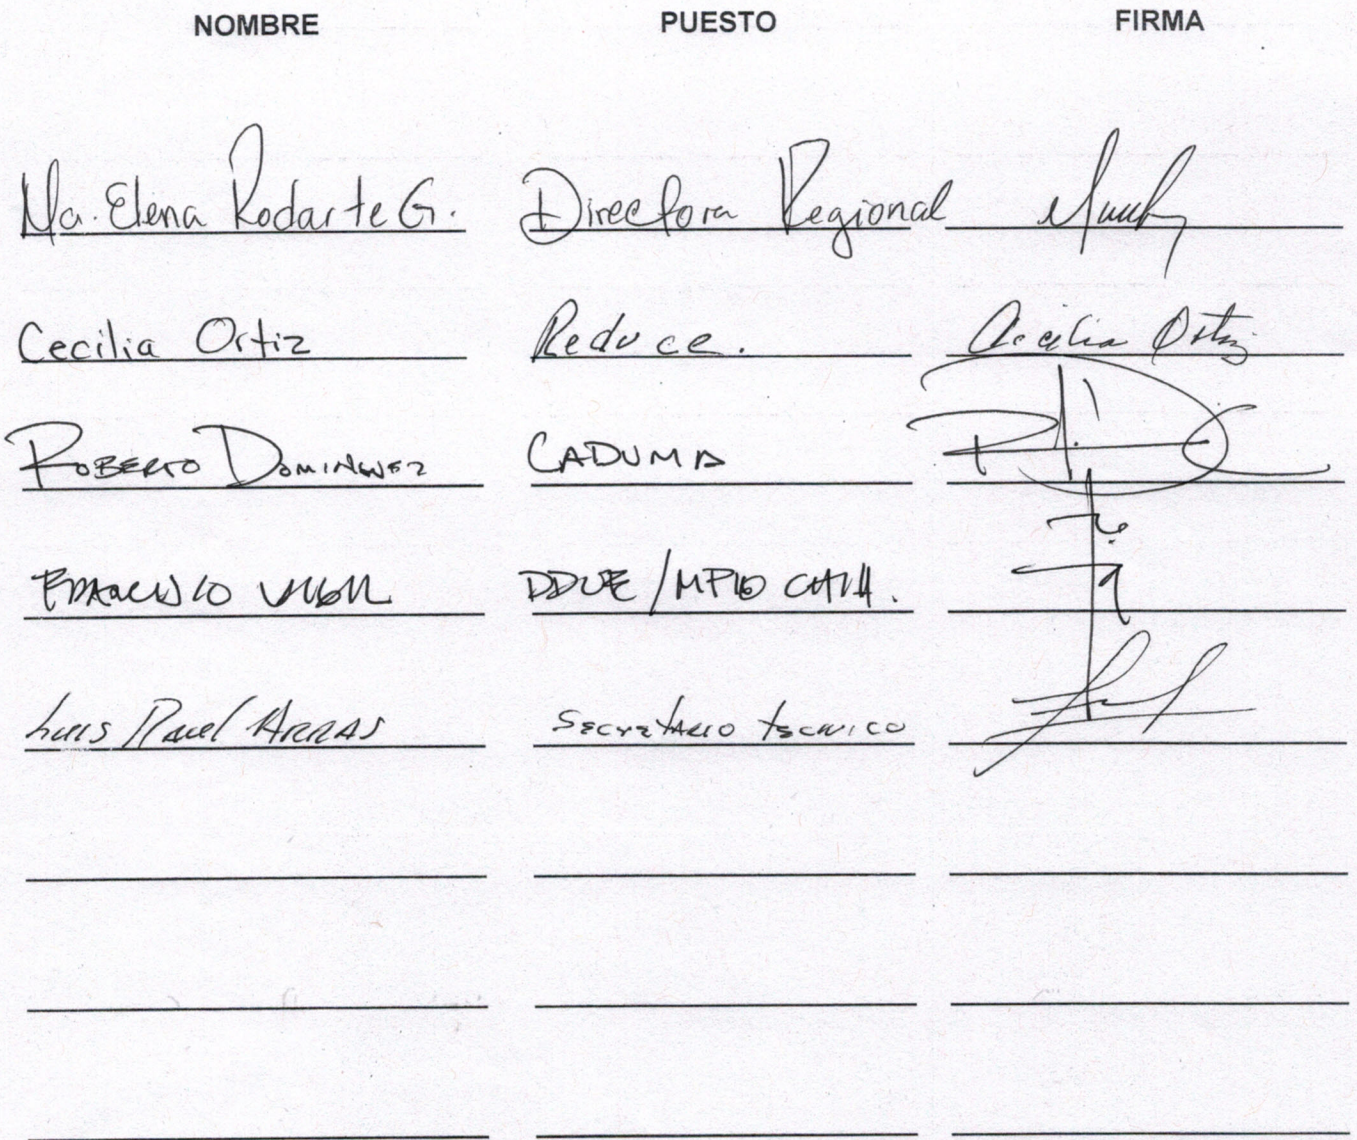 NOMBRE PUESTO FIRMA
Ma. Elena Rodarte G. Directora Regional
Cecilia Ortiz Reduce. Cecilia Ortiz
ROBERTO DOMINGUEZ CADUMA
FRANCISCO VIGIL DDUE/MPIO CHIH.
Luis Raul ARRAS SECRETARIO TECNICO